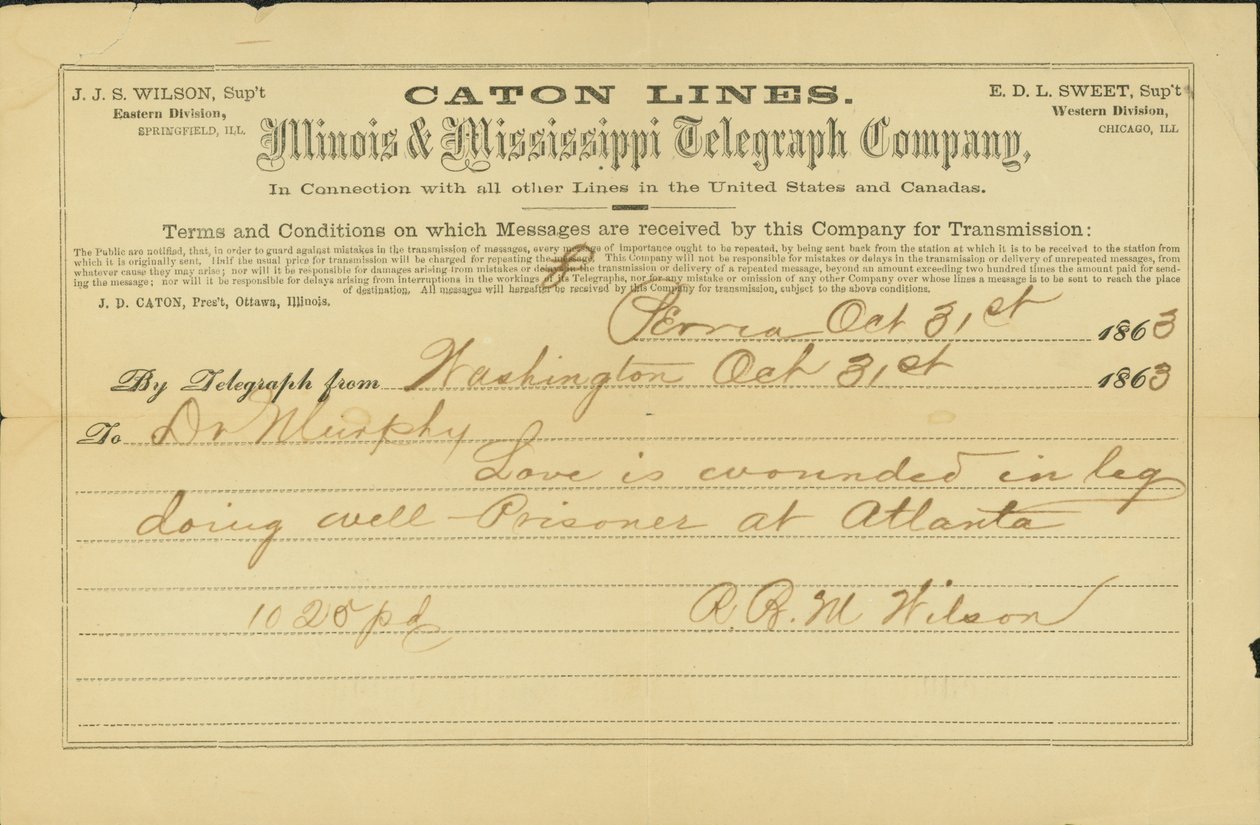 J. J. S. WILSON, Sup't
Eastern Division,
SPRINGFIELD, ILL.
CATON LINES.
E. D. L. SWEET, Sup't
Western Division,
CHICAGO, ILL
Illinois & Mississippi Telegraph Company,
In Connection with all other Lines in the United States and Canadas.
Terms and Conditions on which Messages are received by this Company for Transmission:
The Public are notified, that, in order to guard against mistakes in the transmission of messages, every message of importance ought to be repeated, by being sent back from the station at which it is to be received to the station from
which it is originally sent. Half the usual price for transmission will be charged for repeating the message. This Company will not be responsible for mistakes or delays in the transmission or delivery of unrepeated messages, from
whatever cause they may arise; nor will it be responsible for damages arising from mistakes or delays in the transmission or delivery of a repeated message, beyond an amount exceeding two hundred times the amount paid for send-
ing the message; nor will it be responsible for delays arising from interruptions in the workings of its Telegraphs, nor for any mistake or omission of any other Company over whose lines a message is to be sent to reach the place
of destination. All messages will hereafter be received by this Company for transmission, subject to the above conditions.
J. D. CATON, Pres't, Ottawa, Illinois.
Oct 31st 1863
By Telegraph from Washington Oct 31st 1863
To Dr Murphy
Love is wounded in leg
doing well - Prisoner at Atlanta
10 25 pd R. B. M Wilson